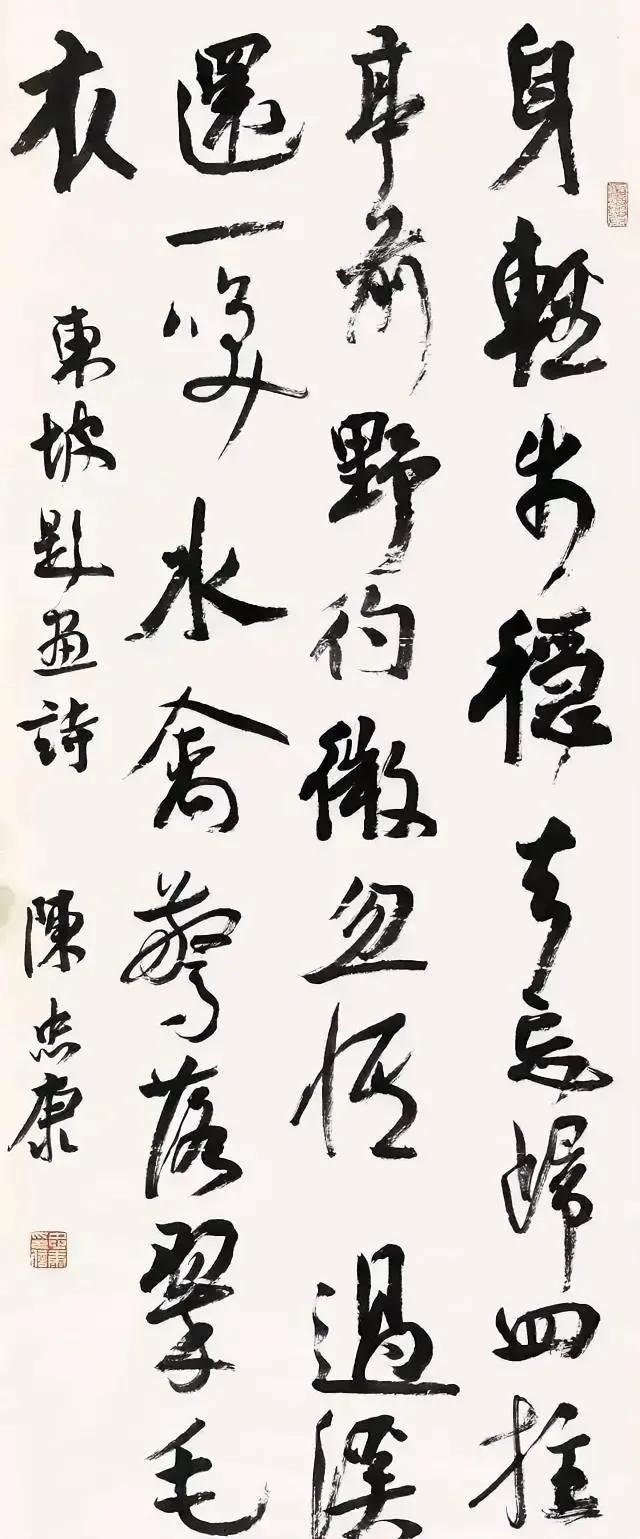 身輕步穩去忘歸四柱
亭前野彴微忽悟過溪
還一笑水禽驚落翠毛
衣
東坡題畫詩
陳忠康